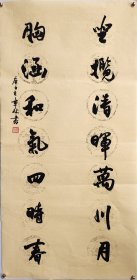 坐攬清暉萬川月
胸涵和氣四時春